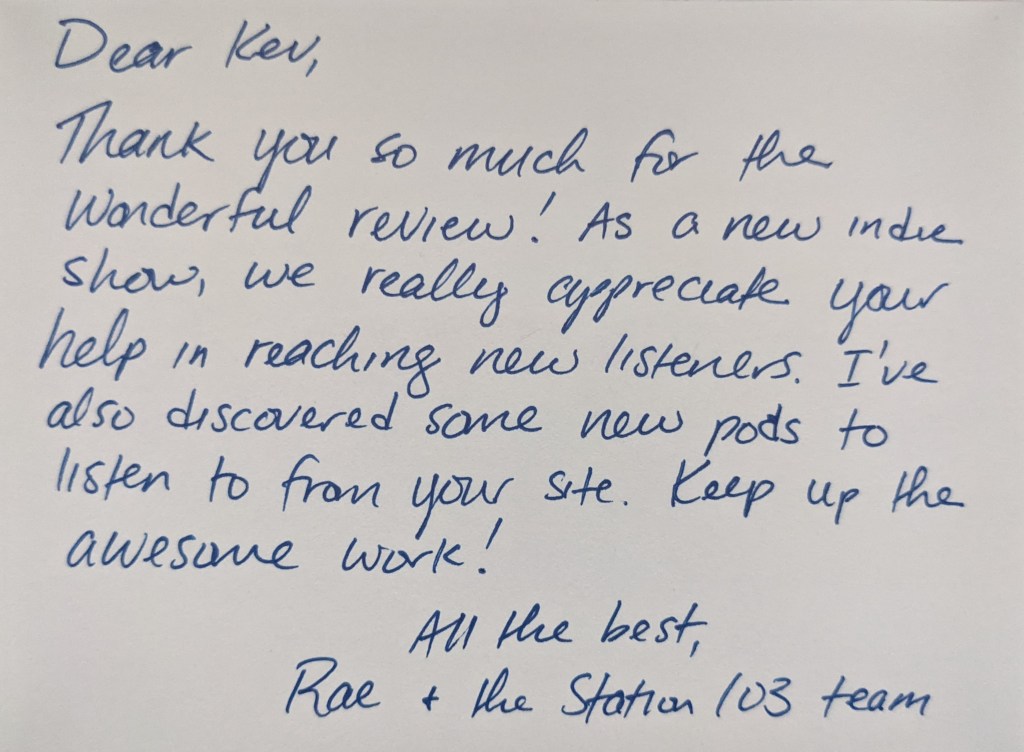 Dear Kev,
Thank you so much for the
wonderful review! As a new indie
show, we really appreciate your
help in reaching new listeners. I've
also discovered some new pods to
listen to from your site. Keep up the
awesome work!
All the best,
Rae + the Station 103 team